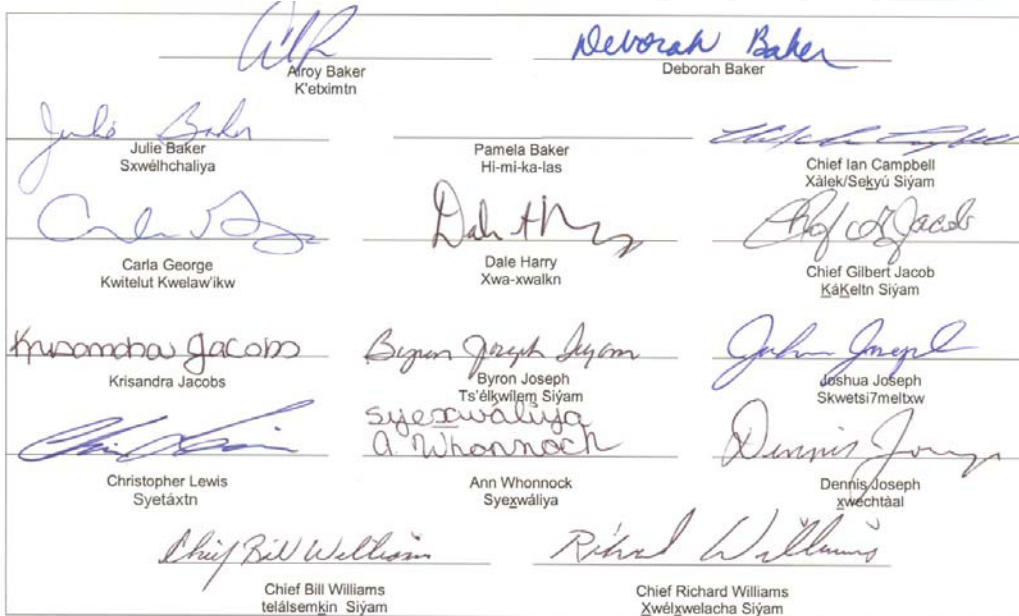 Deborah Baker
Alroy Baker
K'etximtn
Deborah Baker
Julie Baker
Julie Baker
Sxwélhchaliya
Pamela Baker
Hi-mi-ka-las
Chief Ian Campbell
Xàlek/Sekyú Siýam
Carla George
Kwitelut Kwelaw'ikw
Dale Harry
Xwa-xwalkn
Chief Gilbert Jacob
KáKeltn Siýam
Krisandra Jacobs
Krisandra Jacobs
Byron Joseph Siyam
Byron Joseph
Ts'élkwílem Siýam
Joshua Joseph
Skwetsi7meltxw
Christopher Lewis
Syetáxtn
syexwáliya
A. Whonnock
Ann Whonnock
Syexwáliya
Dennis Joseph
xwechtàal
Chief Bill Williams
Chief Bill Williams
telálsemkin Siýam
Richard Williams
Chief Richard Williams
Xwélxwelacha Siýam